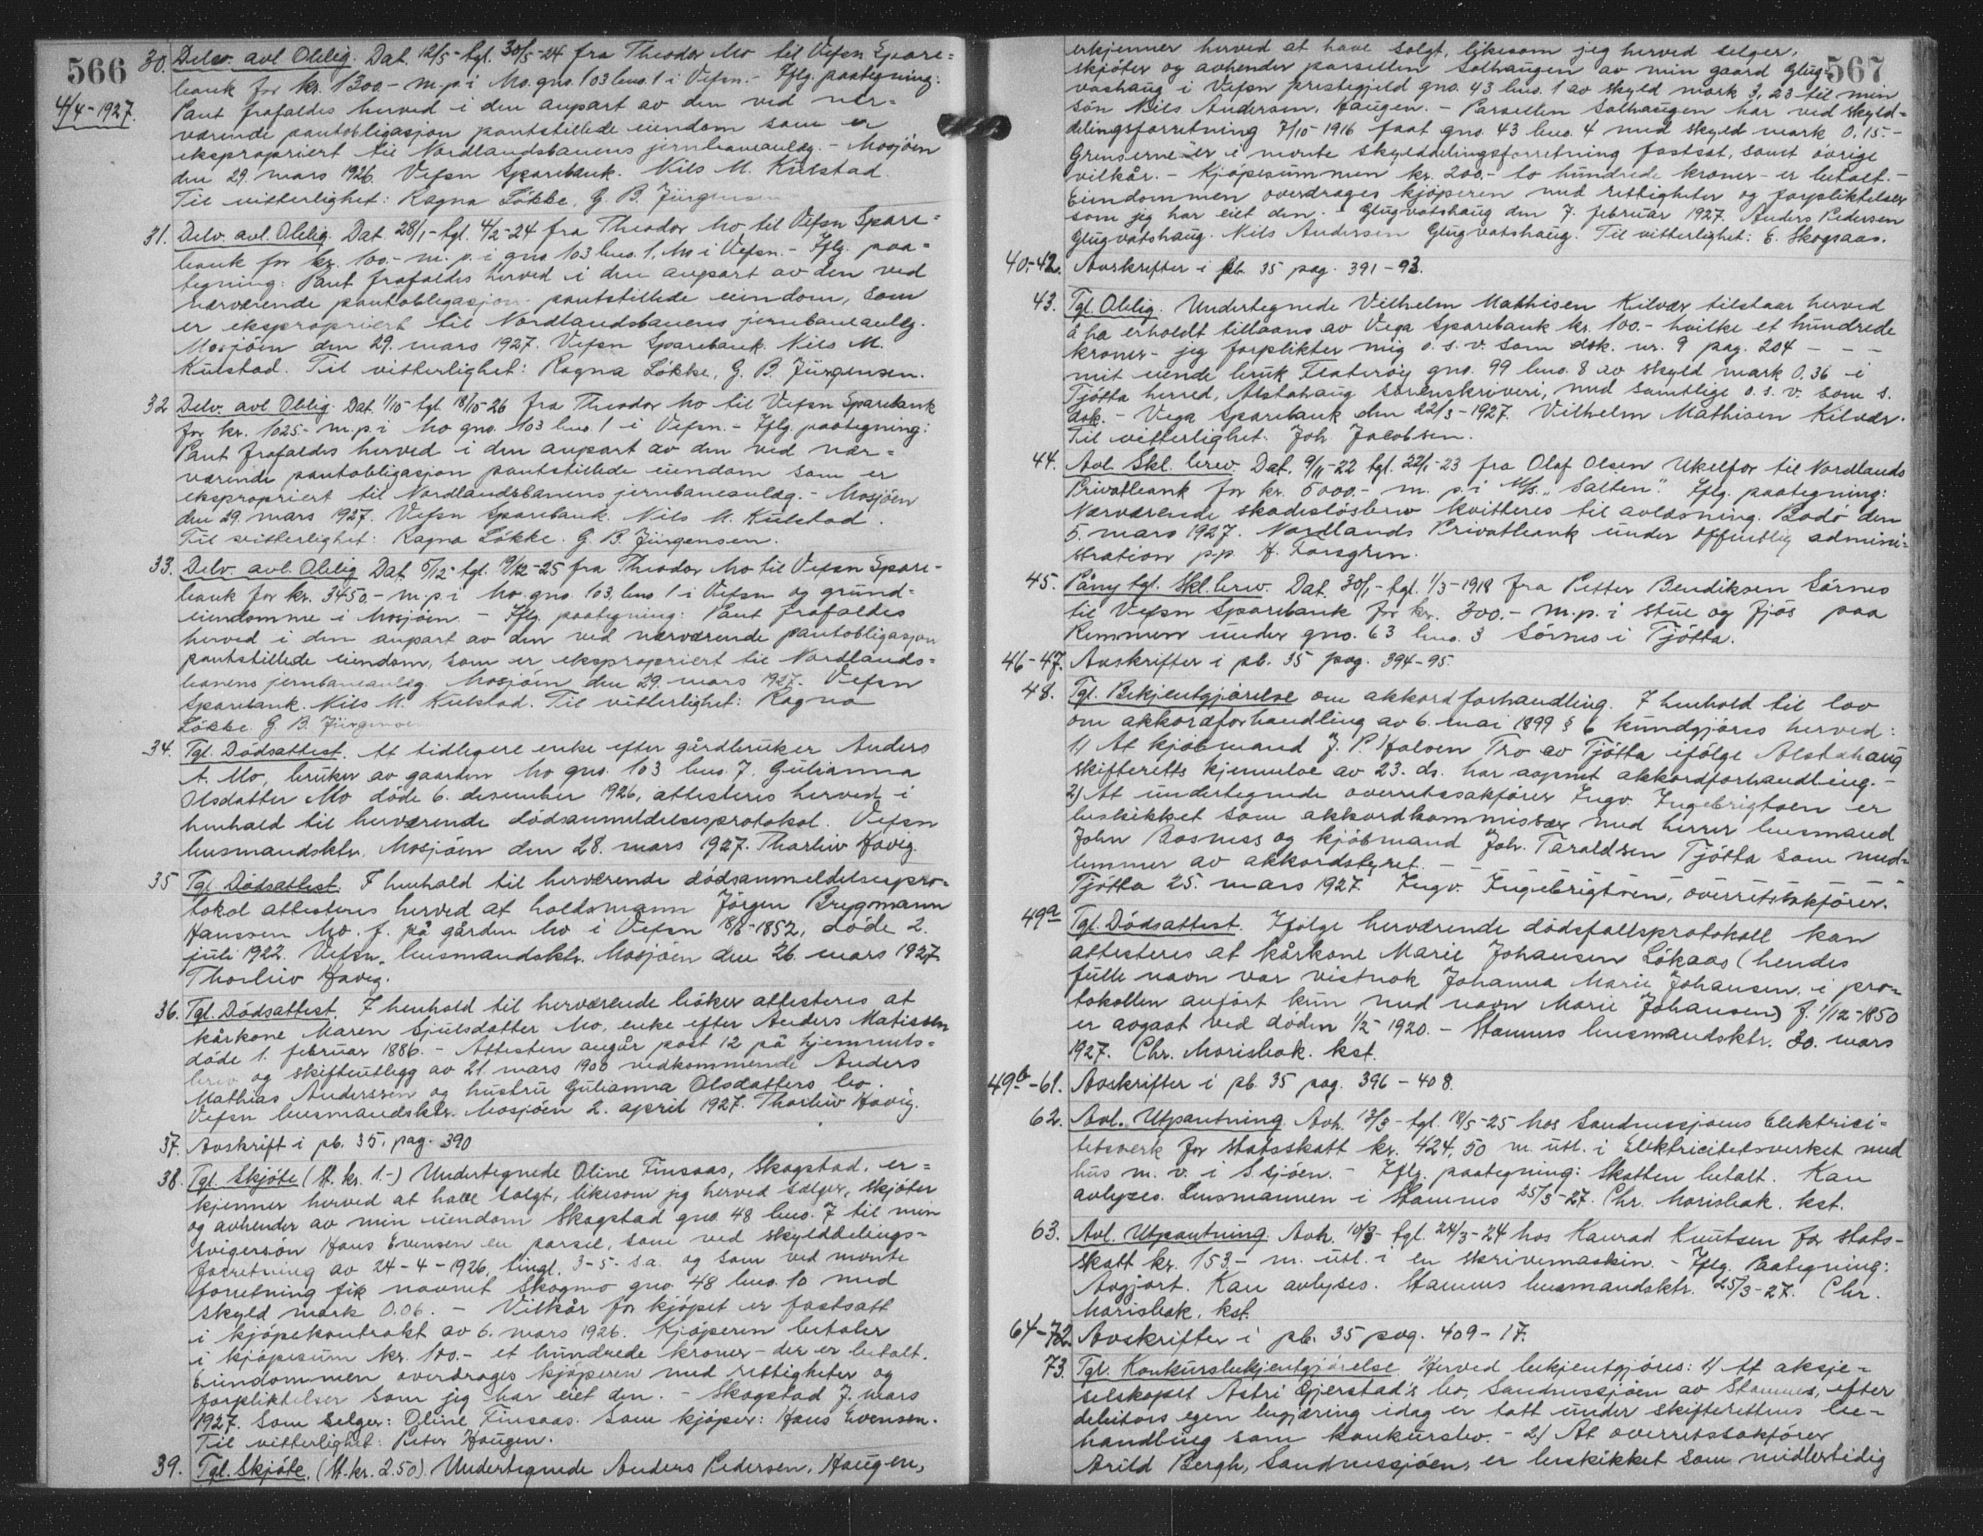 566
4/4-1927.
30. Delv. avl. Oblig. Dat. 12/5- tgl. 30/5-24 fra Theodor Mo til Vefsn Spare=
bank for kr. 1300.- m.p.i Mo. gno. 103 bno. 1 i Vefsn. - Iflg. paategning:
Pant frafaldes herved i den anpart av den ved nær=
værende pantobligasjon pantstillede eiendom som er
ekspropriert til Nordlandsbanens jernbaneanlæg. - Mosjöen
den 29. mars 1926. Vefsn Sparebank. Nils M. Kulstad.
Til vitterlighet: Ragna Løkke, G. B. Jürgensen
31. Delv. avl. Oblig. Dat 28/1- tgl. 4/2-24 fra Theodor Mo til Vefsn Spare=
bank for kr. 100.- m. p. i gno 103 bno. 1, Mo i Vefsn. - Iflg. paa=
tegning: Pant frafaldes herved i den anpart av den ved
nærværende pantobligasjon pantstillede eiendom, som
er ekspropriert til Nordlandsbanens jernbaneanlæg.
Mosjöen den 29. mars 1927. Vefsn Sparebank. Nils M.
Kulstad. Til vitterlighet: Ragna Løkke, G. B. Jürgensen.
32 Delv. avl. Oblig. Dat. 1/10- tgl. 18/10-26 fra Theodor Mo til Vefsn Sparebank
for kr. 1025.- m.p.i Mo gno. 103 bno. 1 i Vefsn. - Iflg. paategning:
Pant frafaldes herved i den anpart av den ved nær=
værende pantobligasjon pantstillede eiendom som er
ekspropriert til Nordlandsbanens jernbaneanlæg. - Mosjöen
den 29. mars 1927. Vefsn Sparebank. Nils M. Kulstad.
Til vitterlighet: Ragna Løkke. G. B. Jürgensen.
33. Delv. avl. Oblig Dat. 5/12- tgl. 9/12-25 fra Theodor Mo til Vefsn Spare-
bank for kr. 3450.- m.p.i Mo. gno. 103, bno 1 i Vefsn og grund=
eiendomme i Mosjöen. - Iflg. paategning: Pant frafaldes
herved i den anpart av den ved nærværende pantobligasjon
pantstillede eiendom, som er ekspropriert til Nordlands=
banens jernbaneanlæg Mosjöen den 29. mars 1927. Vefsn
Sparebank. Nils M. Kulstad. Til vitterlighet: Ragna
Løkke G. B. Jürgensen
34. Tgl. Dödsattest. At tidligere enke efter gårdbruker Anders
A. Mo, bruker av gaarden Mo gno. 103 bno. 7. Gulianna
Olsdatter Mo döde 6. desember 1926, attesteres herved i
henhold til herværende dödsanmeldelsesprotokol. Vefsn
lensmandsktr. Mosjöen den 28. mars 1927. Thorleiv Havig.
35 Tgl. Dödsattest. I henhold til herværende dödsanmeldelsespro-
tokol attesteres herved at holdsmann Jörgen Brygmann
Hanssen Mo. f. på gården Mo i Vefsn 18/8-1852, döde 2.
juli 1922. Vefsn lensmandsktr. Mosjöen den 26. mars 1927
Thorleiv Havig.
36. Tgl. Dödsattest. I henhold til herværende böker attesteres at
kårkone Maren Sjulsdatter Mo, enke efter Anders Matissen
döde 1. februar 1886. - Attesten angår post 12 på hjemmels=
brev og skifteutlegg av 21. mars 1900 vedkommende Anders
Mathias Anderssen og hustru Gulianna Olsdatters bo.
Vefsn lensmandsktr. Mosjöen 2. april 1927. Thorleiv Havig.
37. Avskrift i pb. 35, pag. 390
38. Tgl. Skjöte (St. kr. 1.-) Undertegnede Oline Finsaas, Skogstad, er=
kjenner herved at have solgt, likesom jeg herved sælger, skjöter
og avhender av min eiendom Skogstad gno. 48 bno. 7 til min
svigersön Hans Evensen en parsel, som ved skylddelings=
forretning av 24-4-1926, tingl. 3-5- s.a. og som ved nævnte
forretning fik navnet Skogmo gno. 48 bno. 10 med
skyld mark 0.06. - Vilkår for kjöpet er fastsatt
i kjöpekontrakt av 6. mars 1926. Kjöperen betaler
i kjöpesum kr. 100.- et hundrede kroner - der er betalt.
Eiendommen overdrages kjöperen med rettigheter og
forpliktelser som jeg har eiet den. - Skogstad 7. mars
1927. Som selger: Oline Finsaas. Som kjöper: Hans Evensen.
Til vitterlighet: Peter Haugen.
39. Tgl. Skjöte, (St. kr. 2.50) Undertegnede Anders Pedersen, Haugen,
567
erkjenner herved at have solgt, likesom jeg herved selger,
skjöter og avhender parsellen Solhaugen av min gaard Glug=
vashaug i Vefsn prestegjeld gno. 43 bno. 1 av skyld mark 3.23 til min
sön Nils Andersen, Haugen. - Parsellen Solhaugen har ved skyld=
delingsforretning 7/10-1916 faat gno. 43 bno. 4 med skyld mark 0.15-
Grenserne er i nævnte skylddelingsforretning fastsat, samt övrige
vilkår. - Kjöpesummen kr. 200.- to hundrede kroner - er betalt. -
Eiendommen overdrages kjöperen med rettigheter og forpliktelser
som jeg har eiet den. - Glugvatshaug den 7. februar 1927. Anders Pedersen
Glugvatshaug. Nils Andersen Glugvatshaug. Til vitterlighet: E. Skogsaas.
40-42. Avskrifter i pb. 35 pag. 391-93.
43. Tgl. Oblig. Undertegnede Vilhelm Mathisen Kilvær tilstaar herved
å ha erholdt tillaans av Vega Sparebank kr. 100.- hvilke et hundrede
kroner - jeg forplikter mig o. s. v. som dok. nr. 9 pag. 204 - - -
mit eiende bruk gno. 99 bno. 8 av skyld mark 0,36 - i
Tjötta herred, Alstahaug sorenskriveri, med samtlige o. s. v. som s.
dok. - Vega Sparebank den 22/3-1927. Vilhelm Mathisen Kilvær.
Til vitterlighet: Joh. Jacobsen.
44. Avl. Skl. brev. Dat. 9/11-22 tgl. 22/1-23 fra Olaf Olsen Ukelfor til Nordlands
Privatbank for kr. 5000.- m. p. i M/S. "Salten". Iflg. paategning:
Nærværende skadeslösbrev kvitteres til avlæsning. Bodö den
5. mars 1927. Nordlands Privatbank under offentlig admini=
stration p.p. H. Forsgren.
45. Påny tgl. Skl. brev. Dat. 30/1- tgl. 1/3-1918 fra Petter Bendiksen Sörnes
til Vefsn Sparebank for kr. 300.- m.p. i stue og fjös paa
Remmen under gno. 63 bno. 3 Sörnes i Tjötta.
46-47. Avskrifter i pb. 35 pag. 394-95.
48. Tgl. Bekjentgjörelse om akkordforhandling. I henhold til lov
om akkordforhandling av 6. mai 1899 § 6 kundgjöres herved:
1) At kjöbmand J. P. Halsen Tro av Tjötta ifölge Alstahaug
skifteretts kjennelse av 23. ds. har aapnet akkordforhandling. -
2) At undertegnede overretssakförer Ingv. Ingebrigtsen er
beskikket som akkordkommisær med herrer lensmand
John Aasness og kjöbmand Joh. Taraldsen Tjötta som med=
lemmer av akkordstyret. -
Tjötta 25. mars 1927. Ingv. Ingebrigtsen, overretssakförer.
49a Tgl. Dödsattest. Ifölge herværende dödsfallsprotokoll kan
attesteres at kårkone Marie Johansen Lökaas (hendes
fulle navn var vistnok Johanna Marie Johansen, i pro=
tokollen anfört kun med navn Marie Johansen) f. 1/12-1850
er avgaat ved döden 1/2-1920. - Stamnes lensmandsktr. 30. mars
1927. Chr. Morisbak. kst.
49b-61. Avskrifter i pb. 35 pag. 396-408.
62. Avl. Utpantning. Avh. 13/3- tgl. 18/5-25 hos Sandnessjöens Elektrisi=
tetsverk for statsskatt kr. 424,50 m utl. i Elektricitetsverket med
hus m. v. i S.sjöen. - Iflg. paategning: Skatten betalt. Kan
avlyses. Lensmannen i Stamnes 25/3-27. Chr. Morisbak. kst.
63. Avl. Utpantning. Avh. 10/3- tgl. 24/3-24 hos Konrad Knutsen for stats-
skatt kr. 153.- m. utl. i en skrivemaskin. - Iflg. Paategning:
Avgjort. Kan avlyses. Stamnes lensmandsktr. 25/3-27. Chr.
Morisbak. kst.
64-72 Avskrifter i pb. 35 pag. 409-17.
73. Tgl. Konkursbekjentgjörelse. Herved bekjentgjöres: 1) At aksje=
selskapet Astri Gjerstad's bo, Sandnessjöen av Stamnes, efter
debitors egen begjæring idag er tatt under skifterettens be=
handling som konkursbo. - 2) At overretssakförer
Arild Bergh, Sandnessjöen, er beskikket som midlertidig